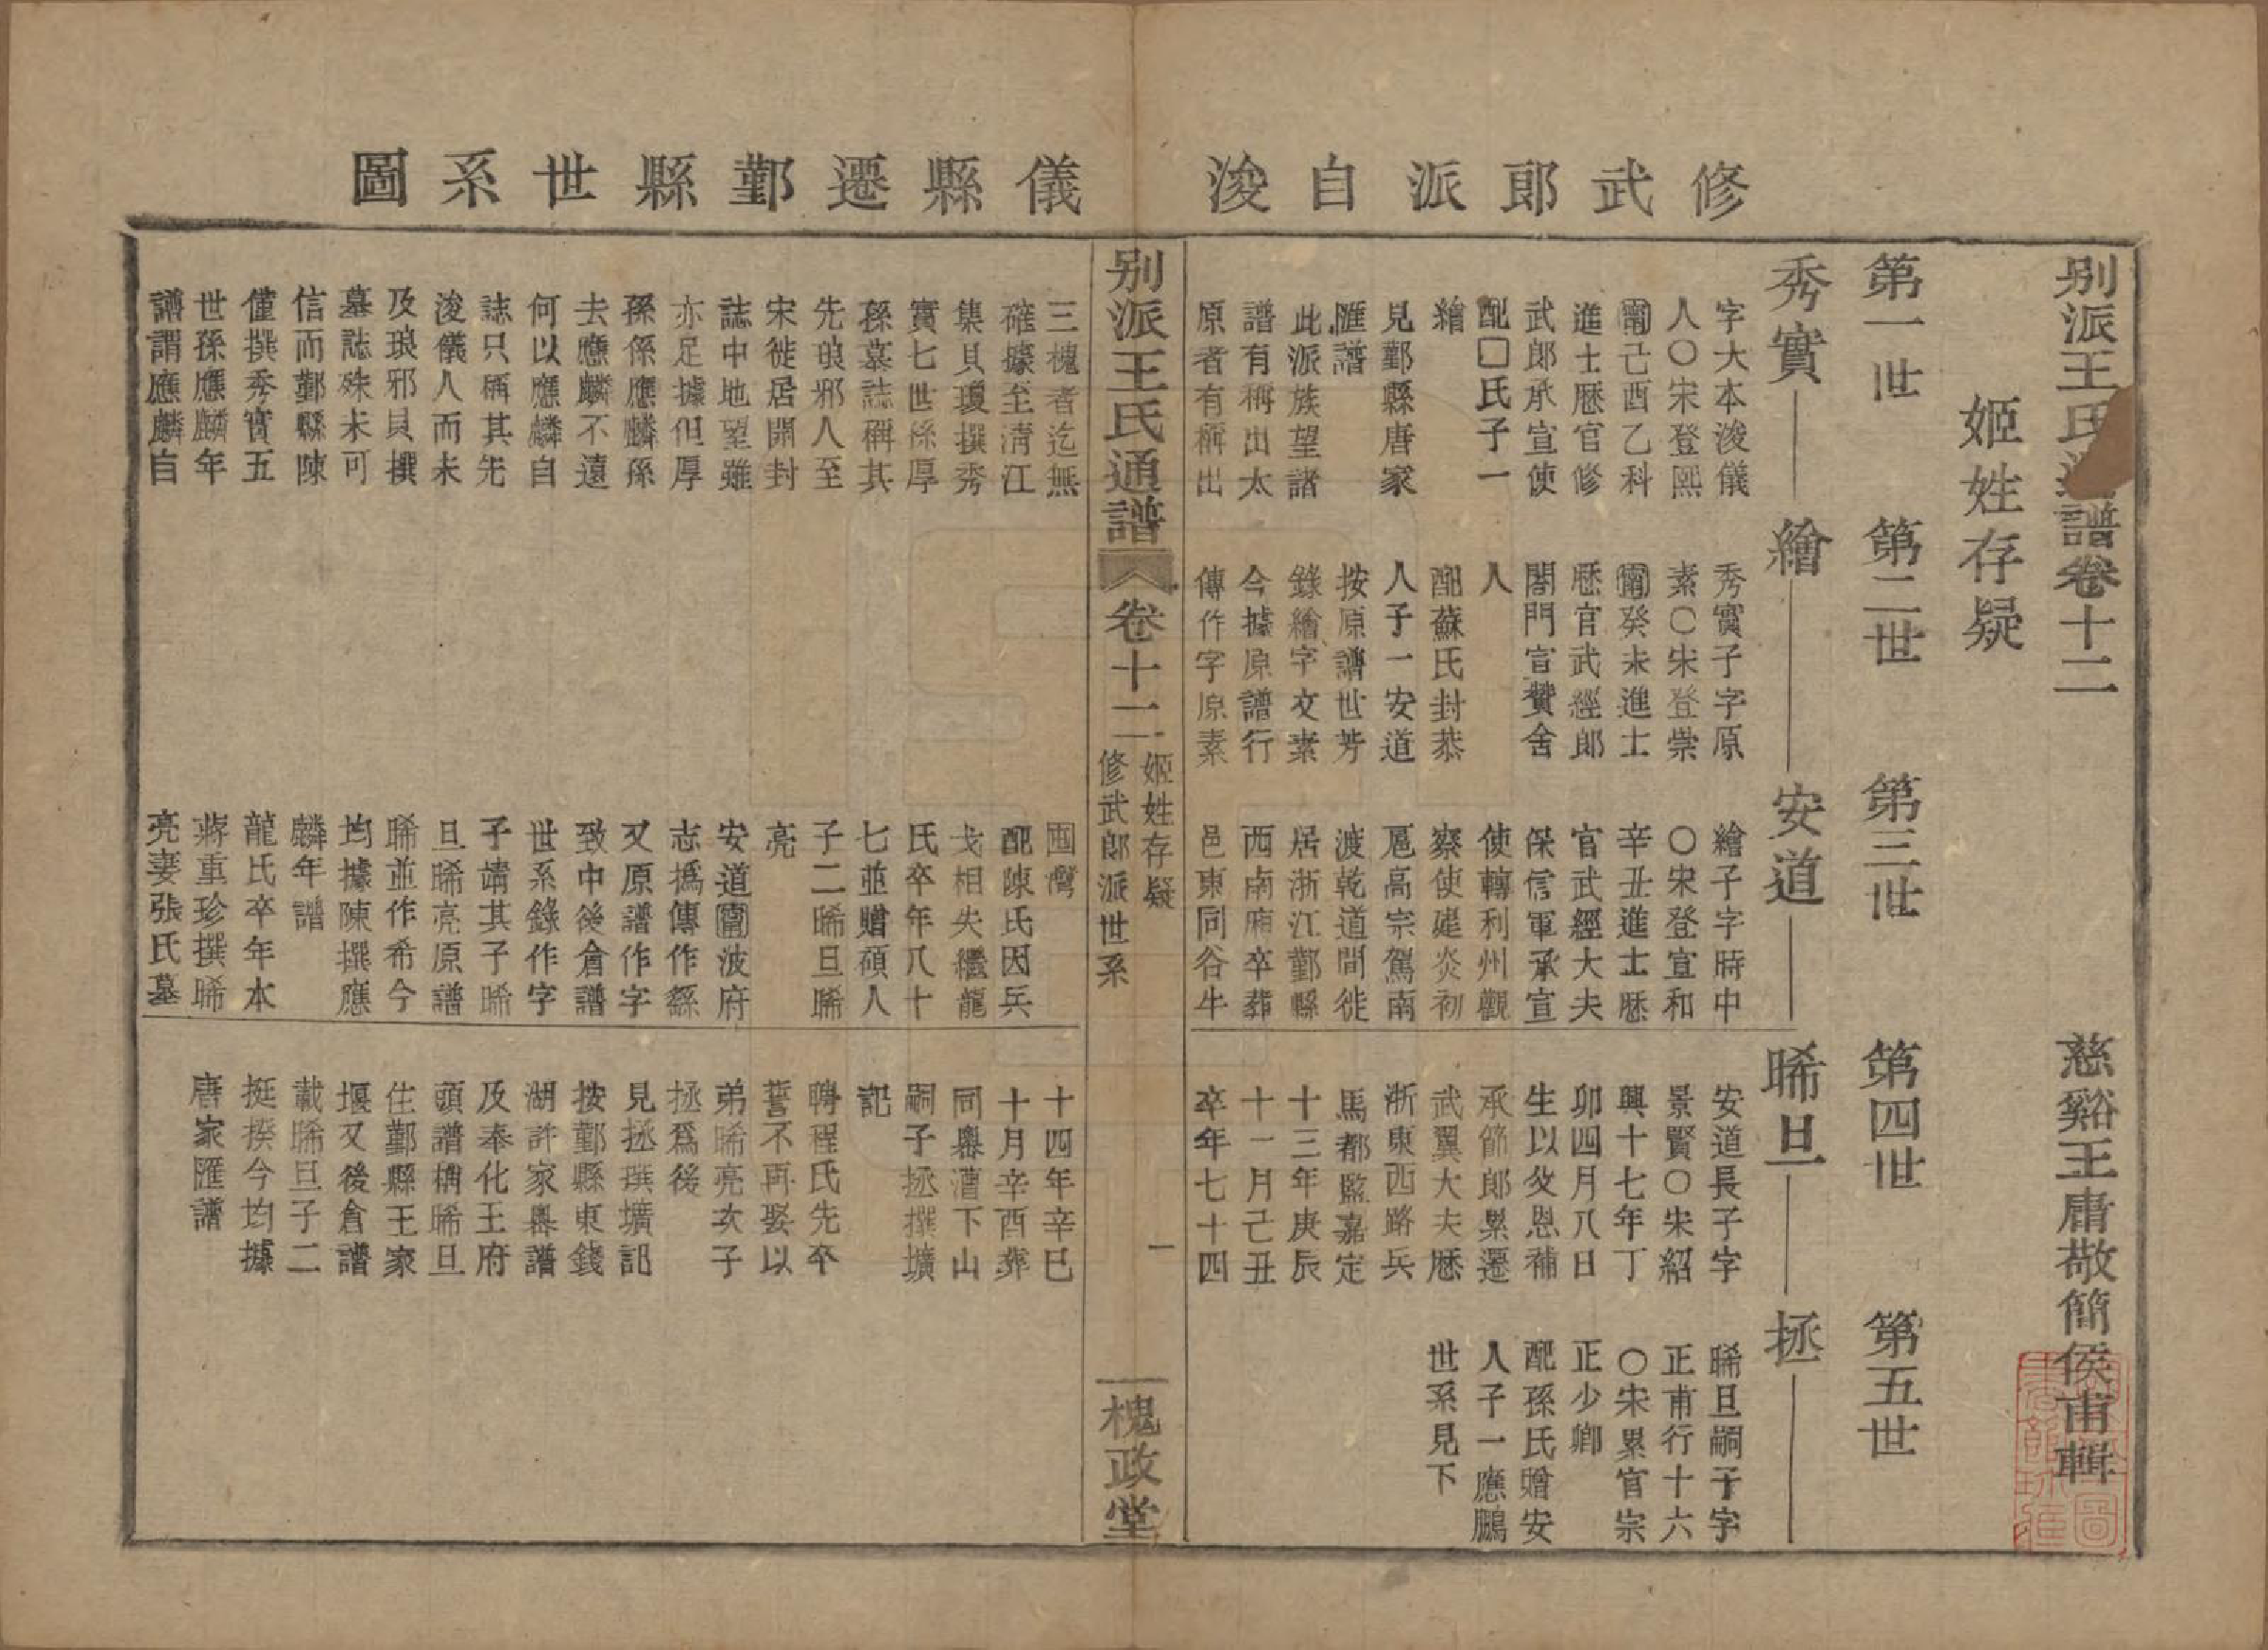 修武郎派自浚儀縣遷鄞縣世系圖
别派王氏通譜卷十二
慈谿王庸敬簡侯甫輯
姬姓存疑
第一世
第二世
第三世
第四世
第五世
秀實
繪
安道
晞旦
拯
字大本浚儀
人〇宋登熙
甯己酉乙科
進士歷官修
武郎承宣使
配口氏子一
繪
見鄞縣唐家
匯譜
此派族望諸
譜有稱出太
原者有稱出
秀實子字原
素〇宋登崇
甯癸未進士
歷官武經郎
閤門宣贊舍
人
配蘇氏封恭
人子一安道
按原譜世芳
錄繪字文素
今據原譜行
傳作字原素
繪子字時中
〇宋登宣和
辛丑進士歷
官武經大夫
保信軍承宣
使轉利州觀
察使建炎初
扈高宗駕南
渡乾道間徙
居浙江鄞縣
西南廂卒葬
邑東同谷牛
安道長子字
景賢〇宋紹
興十七年丁
卯四月八日
生以父恩補
承節郎累遷
武翼大夫歷
浙東西路兵
馬都監嘉定
十三年庚辰
十一月己丑
卒年七十四
晞旦嗣子字
正甫行十六
〇宋累官宗
正少卿
配孫氏贈安
人子一應鵬
世系見下
别派王氏通譜
卷十二
姬姓存疑
修武郎派世系
一
槐政堂
三槐者迄無
確據至清江
集貝瓊撰秀
實七世孫厚
孫墓誌稱其
先琅邪人至
宋徙居開封
誌中地望雖
亦足據但厚
孫係應麟孫
去應麟不遠
何以應麟自
誌只稱其先
浚儀人而未
及琅邪貝撰
墓誌殊未可
信而鄞縣陳
僅撰秀實五
世孫應麟年
譜謂應麟自
灣
配陳氏因兵
戈相失繼龍
氏卒年八十
七並贈碩人
子二晞旦晞
亮
安道甯波府
志撝傳作繇
又原譜作字
致中後倉譜
世系錄作字
子靖其子晞
旦晞亮原譜
晞並作希今
均據陳撰應
麟年譜
龍氏卒年本
蔣重珍撰晞
亮妻張氏墓
十四年辛巳
十月辛酉葬
同嶴漕下山
嗣子拯撰壙
記
聘程氏先卒
誓不再娶以
弟晞亮次子
拯爲後
見拯撰壙記
按鄞縣東錢
湖許家嶴譜
及奉化王府
頭譜稱晞旦
住鄞縣王家
堰又後倉譜
載晞旦子二
挺揆今均據
唐家匯譜